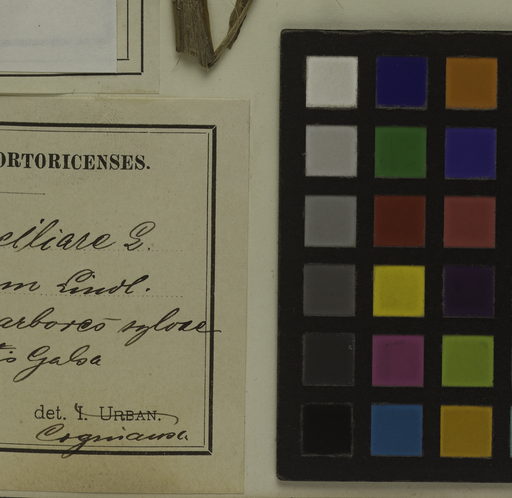 ORTORICENSES.
ciliare L.
m Lindl.
arboreo sylvae
Galsa
det. I. URBAN.
Cogniaux.